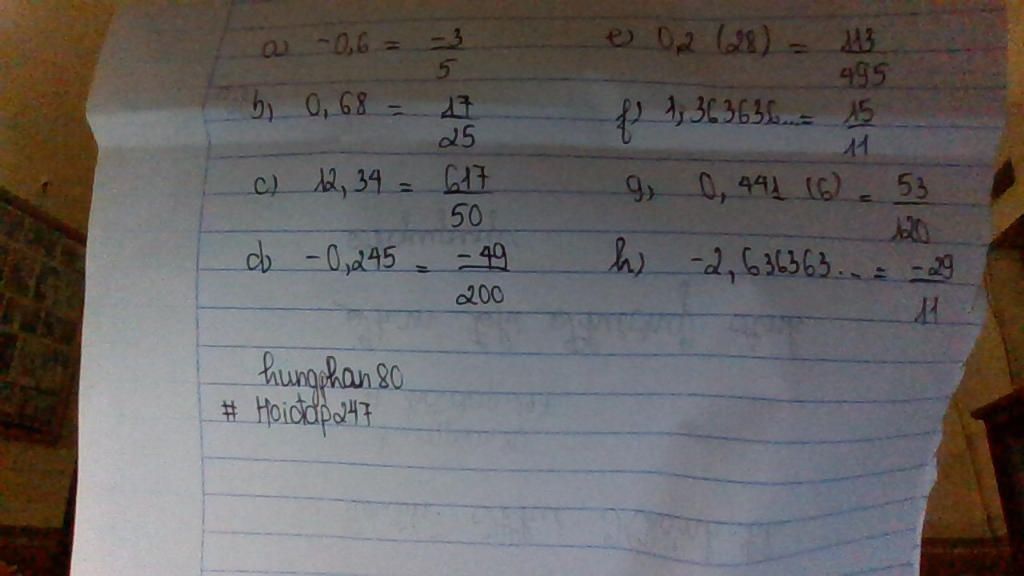 a) -0,6 = -3/5
b) 0,68 = 17/25
c) 12,34 = 617/50
d) -0,245 = -49/200
e) 0,2 (28) = 113/495
f) 1,363636... = 15/11
g) 0,441 (6) = 53/120
h) -2,636363... = -29/11
hungphan80
# Hoidap247